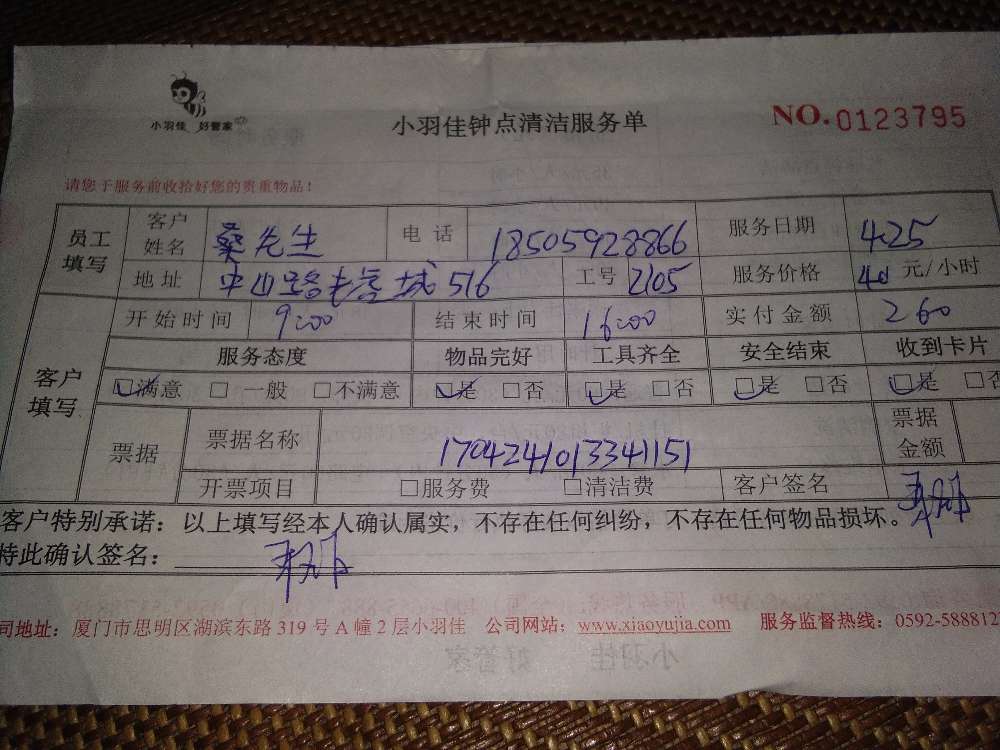 小羽佳 好管家
小羽佳钟点清洁服务单
NO.0123795
请您于服务前收拾好您的贵重物品！
员工填写 客户姓名 桑先生 电话 18505928866 服务日期 4.25
地址 中山路 城516 工号 2105 服务价格 40 元/小时
客户填写 开始时间 9:00 结束时间 16:00 实付金额 260
服务态度 物品完好 工具齐全 安全结束 收到卡片
☑满意 □一般 □不满意 ☑是 □否 ☑是 □否 ☑是 □否 ☑是 □否
票据 票据名称 1704241013341151 票据金额
开票项目 □服务费 □清洁费 客户签名
客户特别承诺：以上填写经本人确认属实，不存在任何纠纷，不存在任何物品损坏。
特此确认签名：
司地址：厦门市思明区湖滨东路 319 号 A 幢 2 层小羽佳 公司网站：www.xiaoyujia.com 服务监督热线：0592-588812